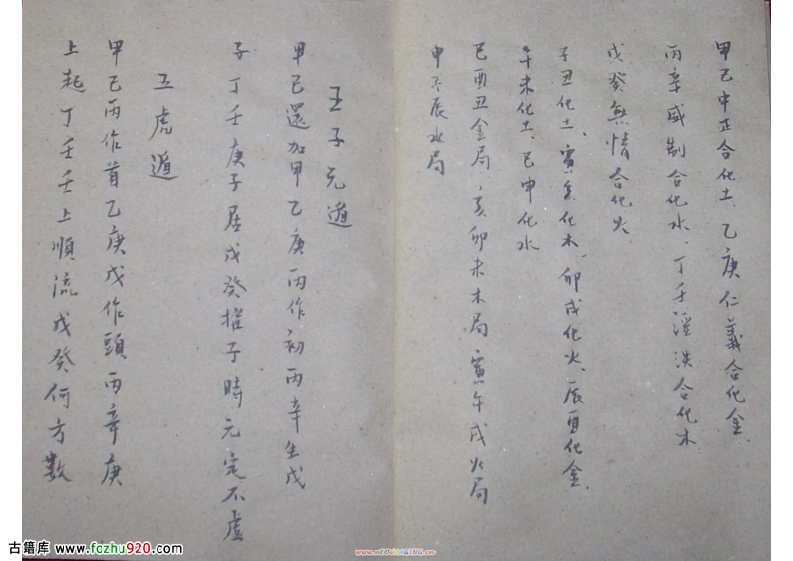 甲己中正合化土、乙庚仁義合化金、
丙辛威制合化水、丁壬淫泆合化木
戊癸無情合化火
子丑化土、寅亥化木、卯戌化火、辰酉化金、
午未化土、巳申化水
巳酉丑金局、亥卯未木局 寅午戌火局
申子辰水局
五子元遁
甲己還加甲乙庚丙作初丙辛生戊
子丁壬庚子居戊癸推子時元定不虛
五虎遁
甲己丙作首乙庚戊作頭丙辛庚
上起丁壬壬上順流戊癸何方數
古籍库 www.fczhu920.com